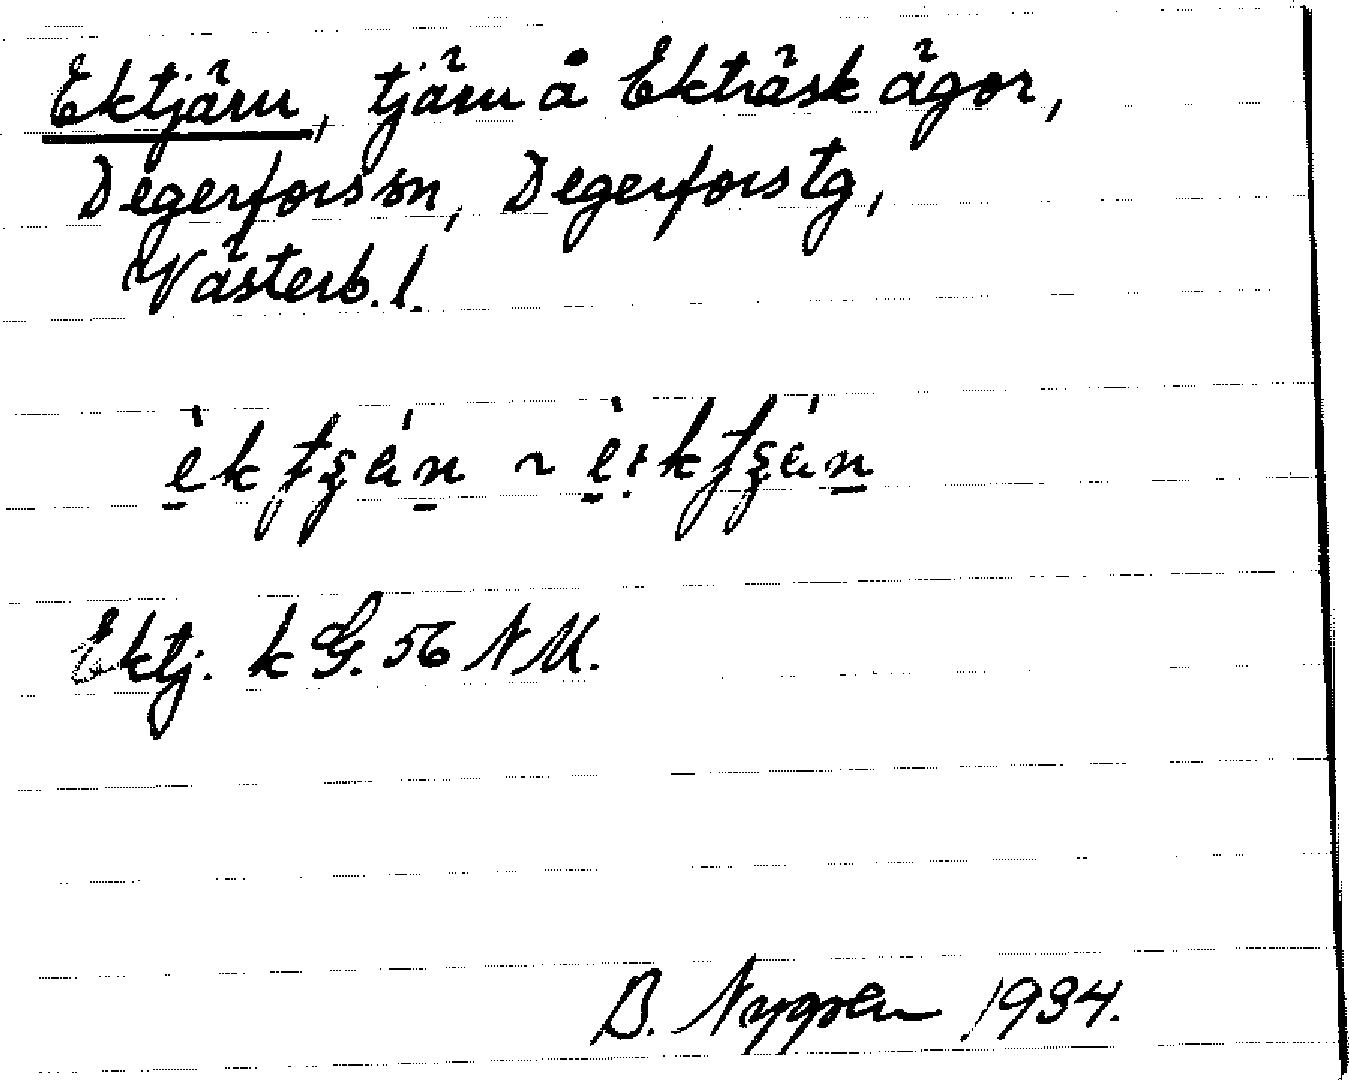 Ektjärn, tjärn å Ekträsk ägor,
Degerfors sn, Degerfors tg,
Västerb. l.
Ektj. k G. 56 NU.
B. Nygren 1934.